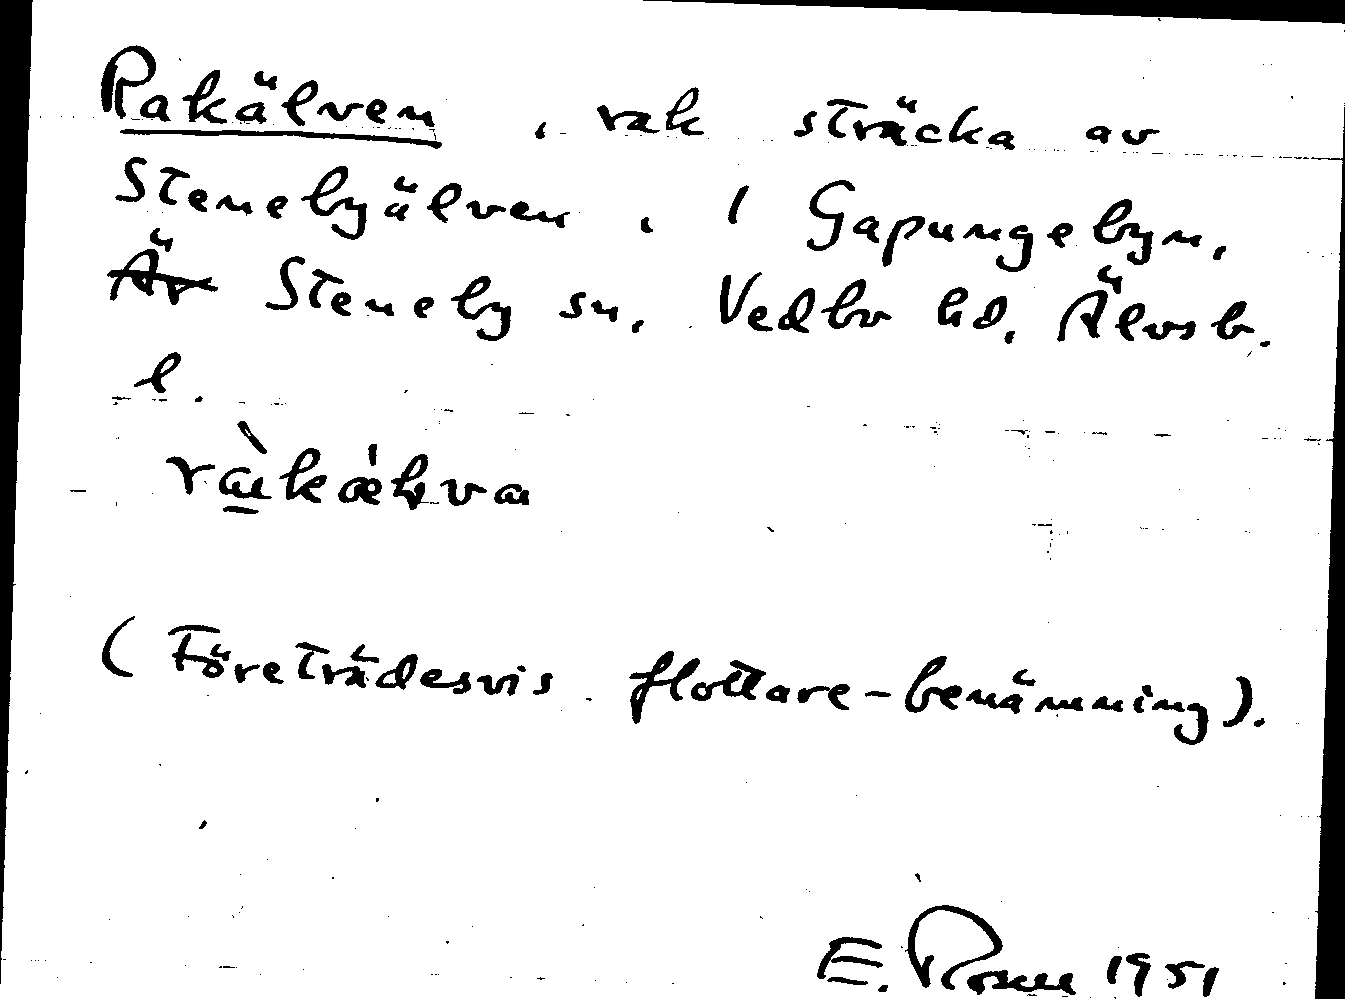 Rakälven, rak sträcka av
Stenebyälven, i Gapungebyn,
Är Steneby sn, Vedbo hd, Älvsb.
l.
(Företrädesvis flottare-benämning).
E. Rosell 1951